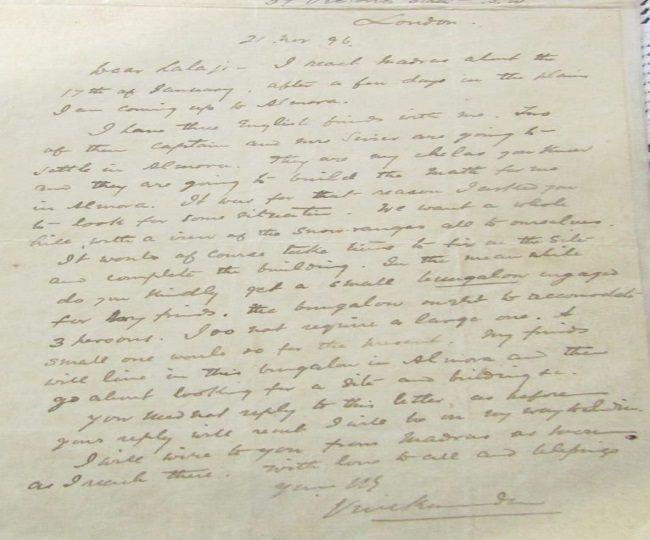 London.
21 Nov 96.
Dear Lalaji - I reach Madras about the
17th of January, after a few days in the plains
I am coming up to Almora.
I have three English friends with me. Two
of them Captain and Mrs Sevier are going to
settle in Almora. They are my chelas you know
and they are going to build the Math for me
in Almora. It was for that reason I asked you
to look for some situation. We want a whole
hill, with a view of the snow-ranges all to ourselves.
It would of course take time to fix on the Site
and complete the building. In the meanwhile
do you kindly get a small bungalow engaged
for my friends. The bungalow ought to accomodate
3 persons. I do not require a large one. A
small one would do for the present. My friends
will live in this bungalow in Almora and then
go about looking for a site and building &c.
You need not reply to this letter, as before
your reply will reach I will be on my way to India.
I will wire to you from Madras as soon
as I reach there. With love to all and blessings
Vivekananda